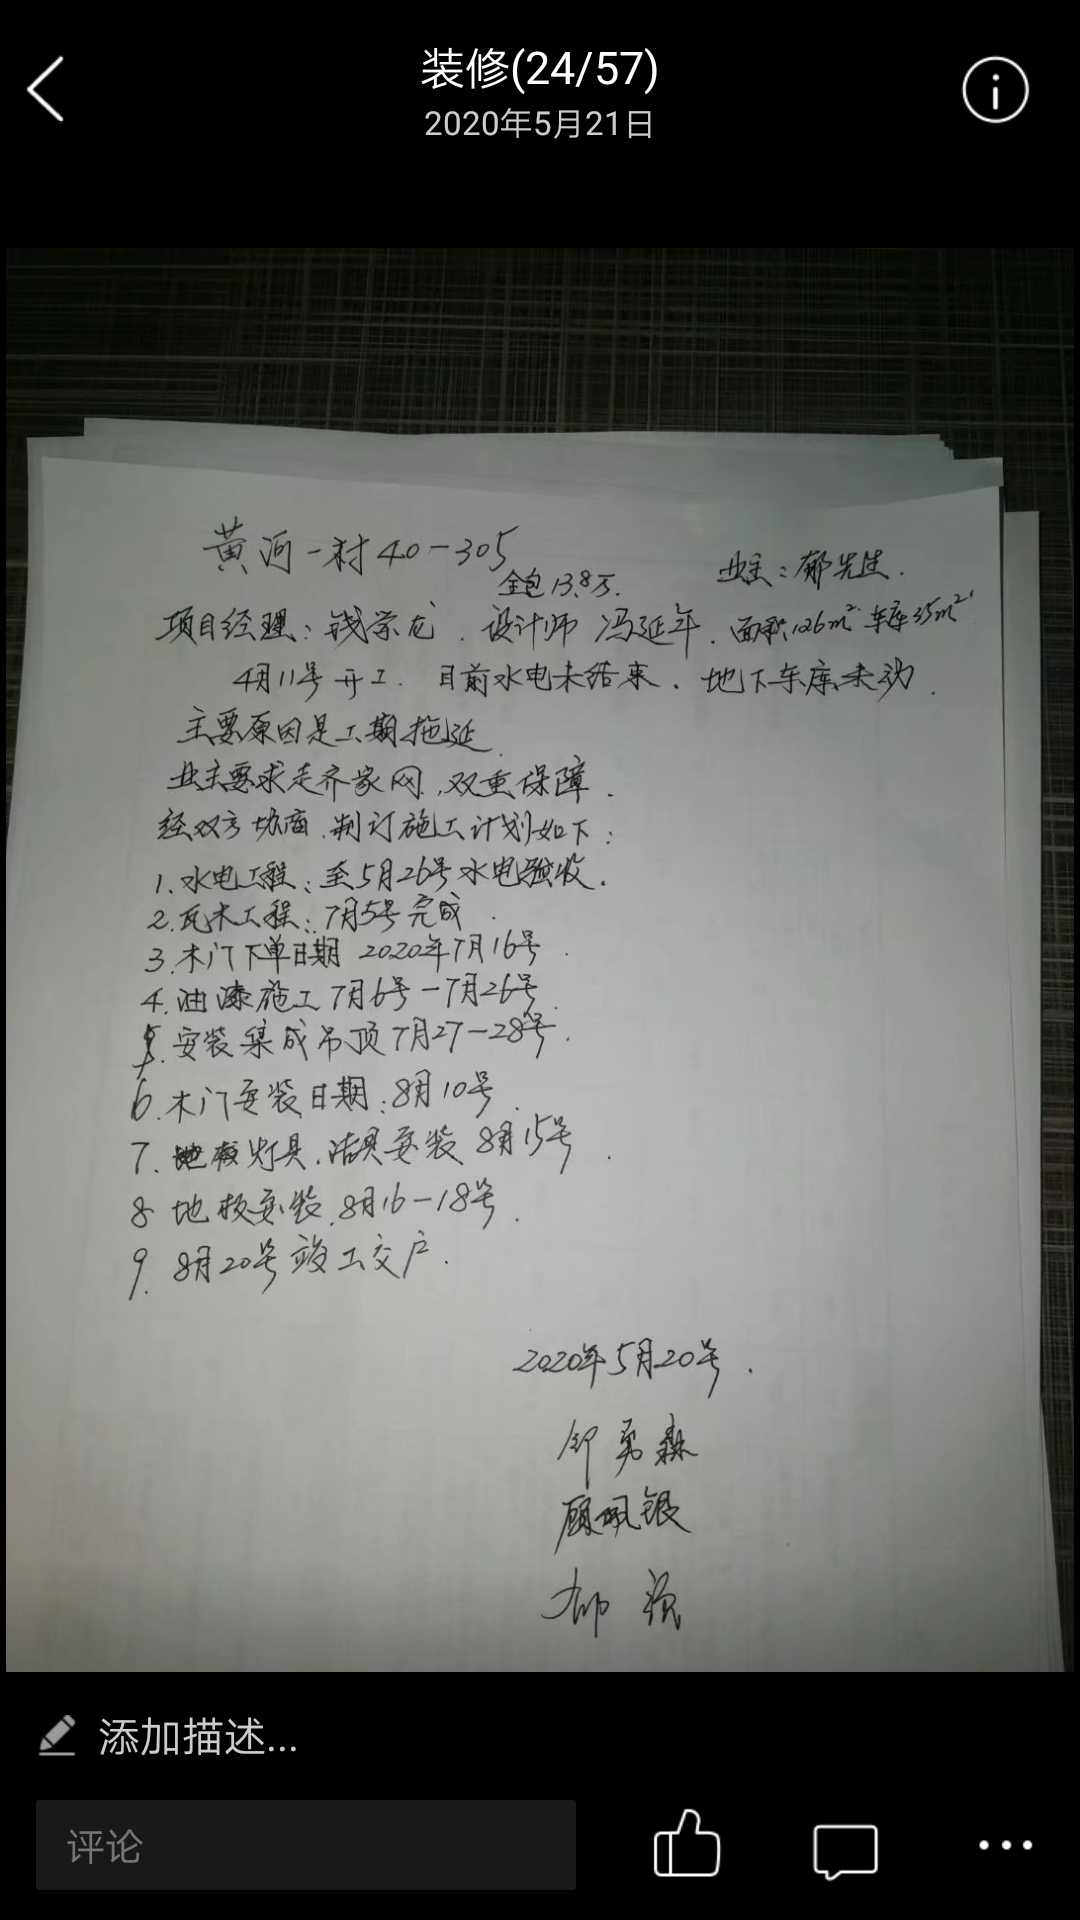 装修(24/57)
2020年5月21日
黄河一村40-305
全包13.8万.
业主:郁先生.
项目经理:钱荣龙.设计师 冯延年.面积126m² 车库35m²
4月11号开工.目前水电未结束.地下车库未动.
主要原因是工期拖延.
业主要求走齐家网,双重保障.
经双方协商,制订施工计划如下:
1.水电工程:至5月26号水电验收.
2.瓦木工程:7月5号完成.
3.木门下单日期 2020年7月16号.
4.油漆施工7月6号-7月26号
5.安装集成吊顶7月27-28号.
6.木门安装日期:8月10号.
7.灯具.洁具安装 8月15号.
8 地板安装.8月16-18号.
9.8月20号竣工交户.
2020年5月20号.
勇森
顾佩银
郁
添加描述...
评论